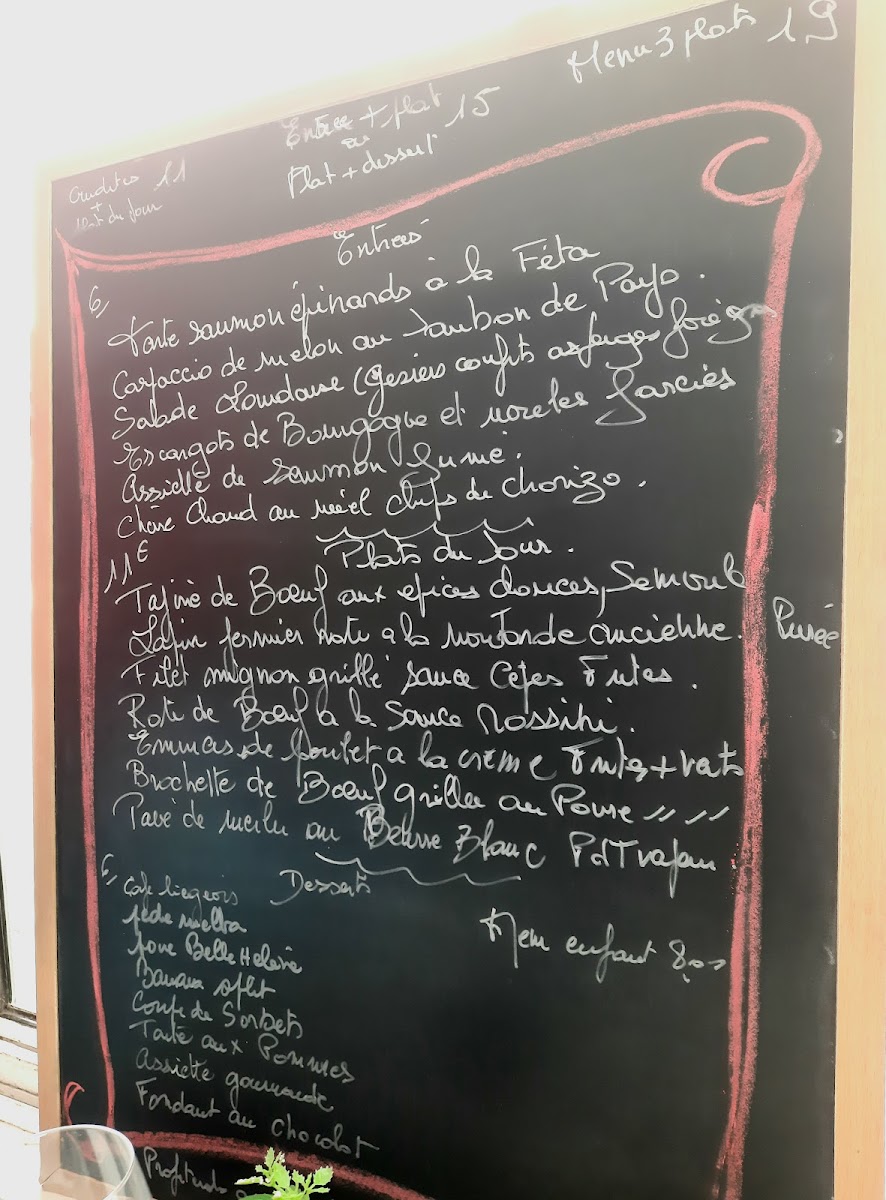 Menu 3 plats 19
Entrée + plat 15
ou
Plat + dessert
Crudités 11
+
plat du Jour
Entrées
6,
Tarte saumon épinards à la Féta
Carpaccio de melon au Jambon de Pays.
Salade Landaise (gesiers confits asperges foiegras
Escargots de Bourgogne et morilles farcies
Assiette de saumon fumé.
Chèvre Chaud au miel chips de chorizo.
Plats du Jour.
11€
Tajine de Boeuf aux epices douces, Semoule
Lapin fermier roti a la moutarde ancienne. Purée
Filet mignon grillé sauce Cèpes Frites.
Roti de Boeuf à la Sauce Rossini.
Emincés de poulet a la crème Frites + rats
Brochette de Boeuf griller au Poivre 〃 〃
Pavé de merlu au Beurre Blanc PdTvapeur.
Desserts
6,
Café liegeois
pêche melba
poire Belle Helène
Banana split
Coupe de Sorbets
Tarte aux Pommes
Assiette gourmande
Fondant au chocolat
Menu enfant 8,00